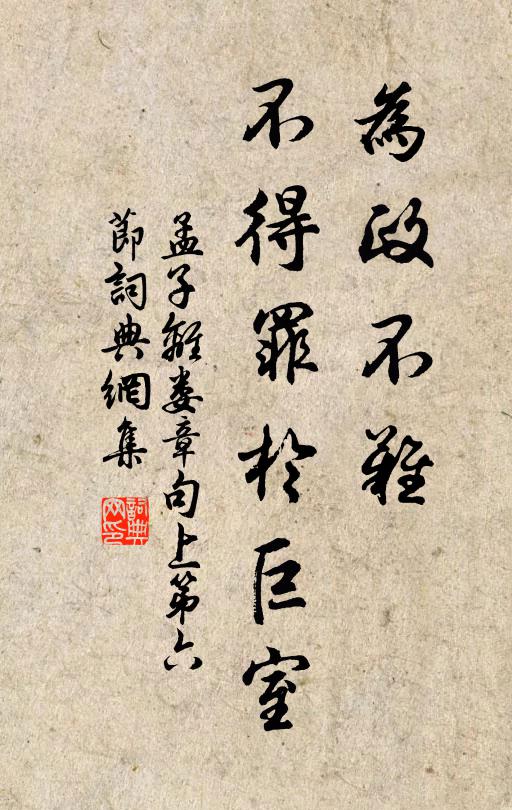 為政不難
不得罪於巨室
孟子離婁章句上第六
節詞典網集
詞典
网印